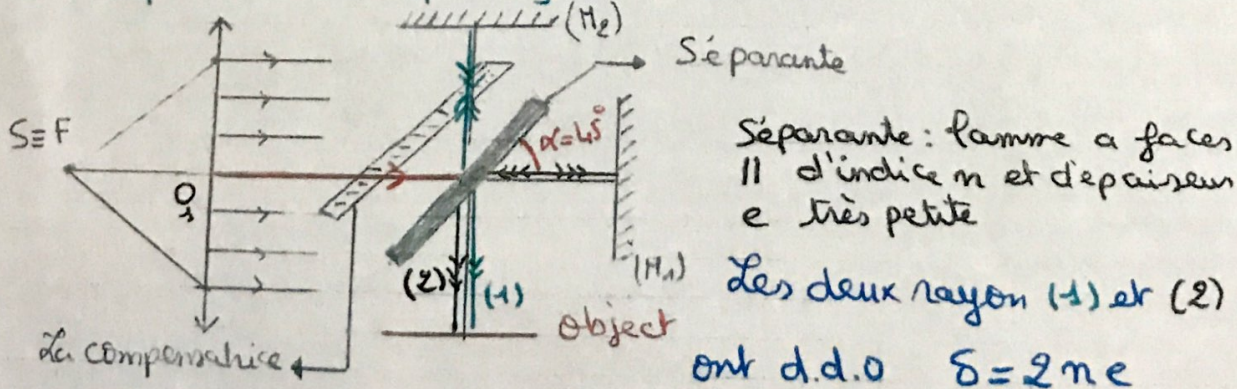 (M₂)
Séparante
S≡F
α=45°
O
1
Séparante : lamme a faces
|| d'indice n et d'épaiseur
e très petite
(2)
(1)
(M₁)
Les deux rayon (1) et (2)
object
La compensatrice
ont d.d.o δ=2ne